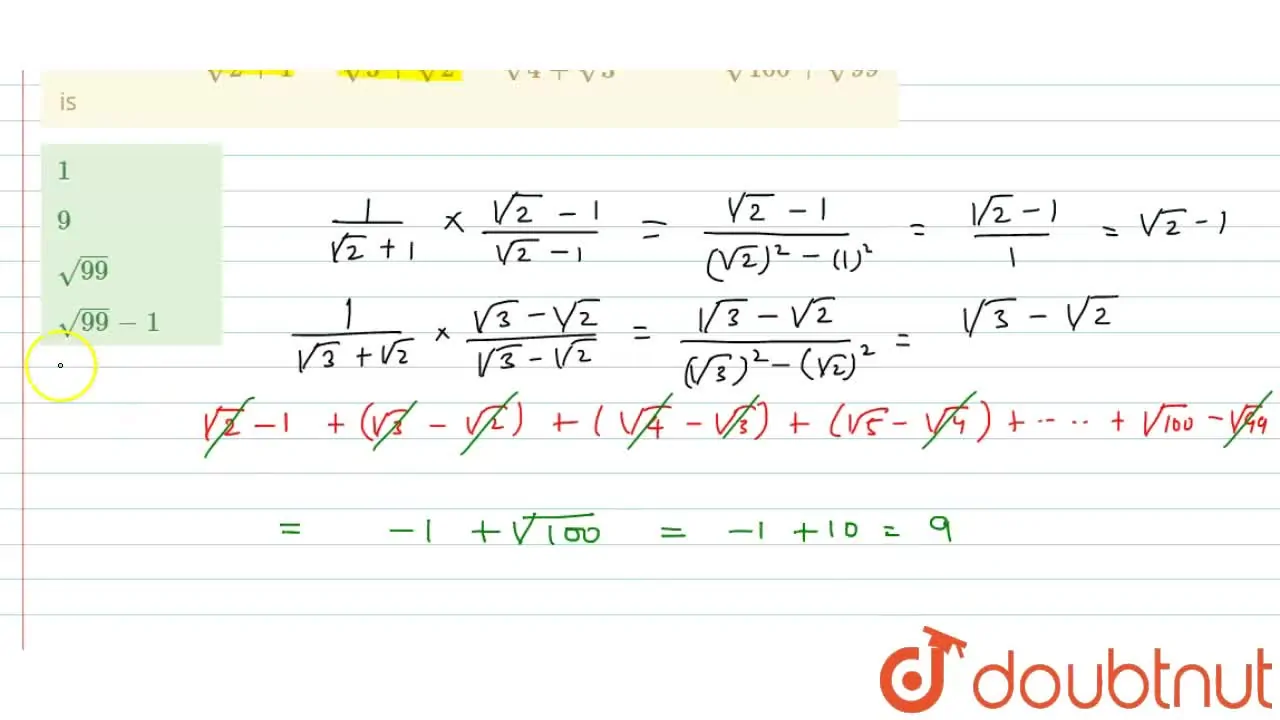 √2 + 1 √3 + √2 √4 + √3 √100 + √99
is
1
9
√99
√99 − 1
1/(√2 + 1) × (√2 − 1)/(√2 − 1) = (√2 − 1)/((√2)² − (1)²) = (√2 − 1)/1 = √2 − 1
1/(√3 + √2) × (√3 − √2)/(√3 − √2) = (√3 − √2)/((√3)² − (√2)²) = √3 − √2
√2 − 1 + (√3 − √2) + (√4 − √3) + (√5 − √4) + ---- + √100 − √99
= −1 + √100 = −1 + 10 = 9
doubtnut